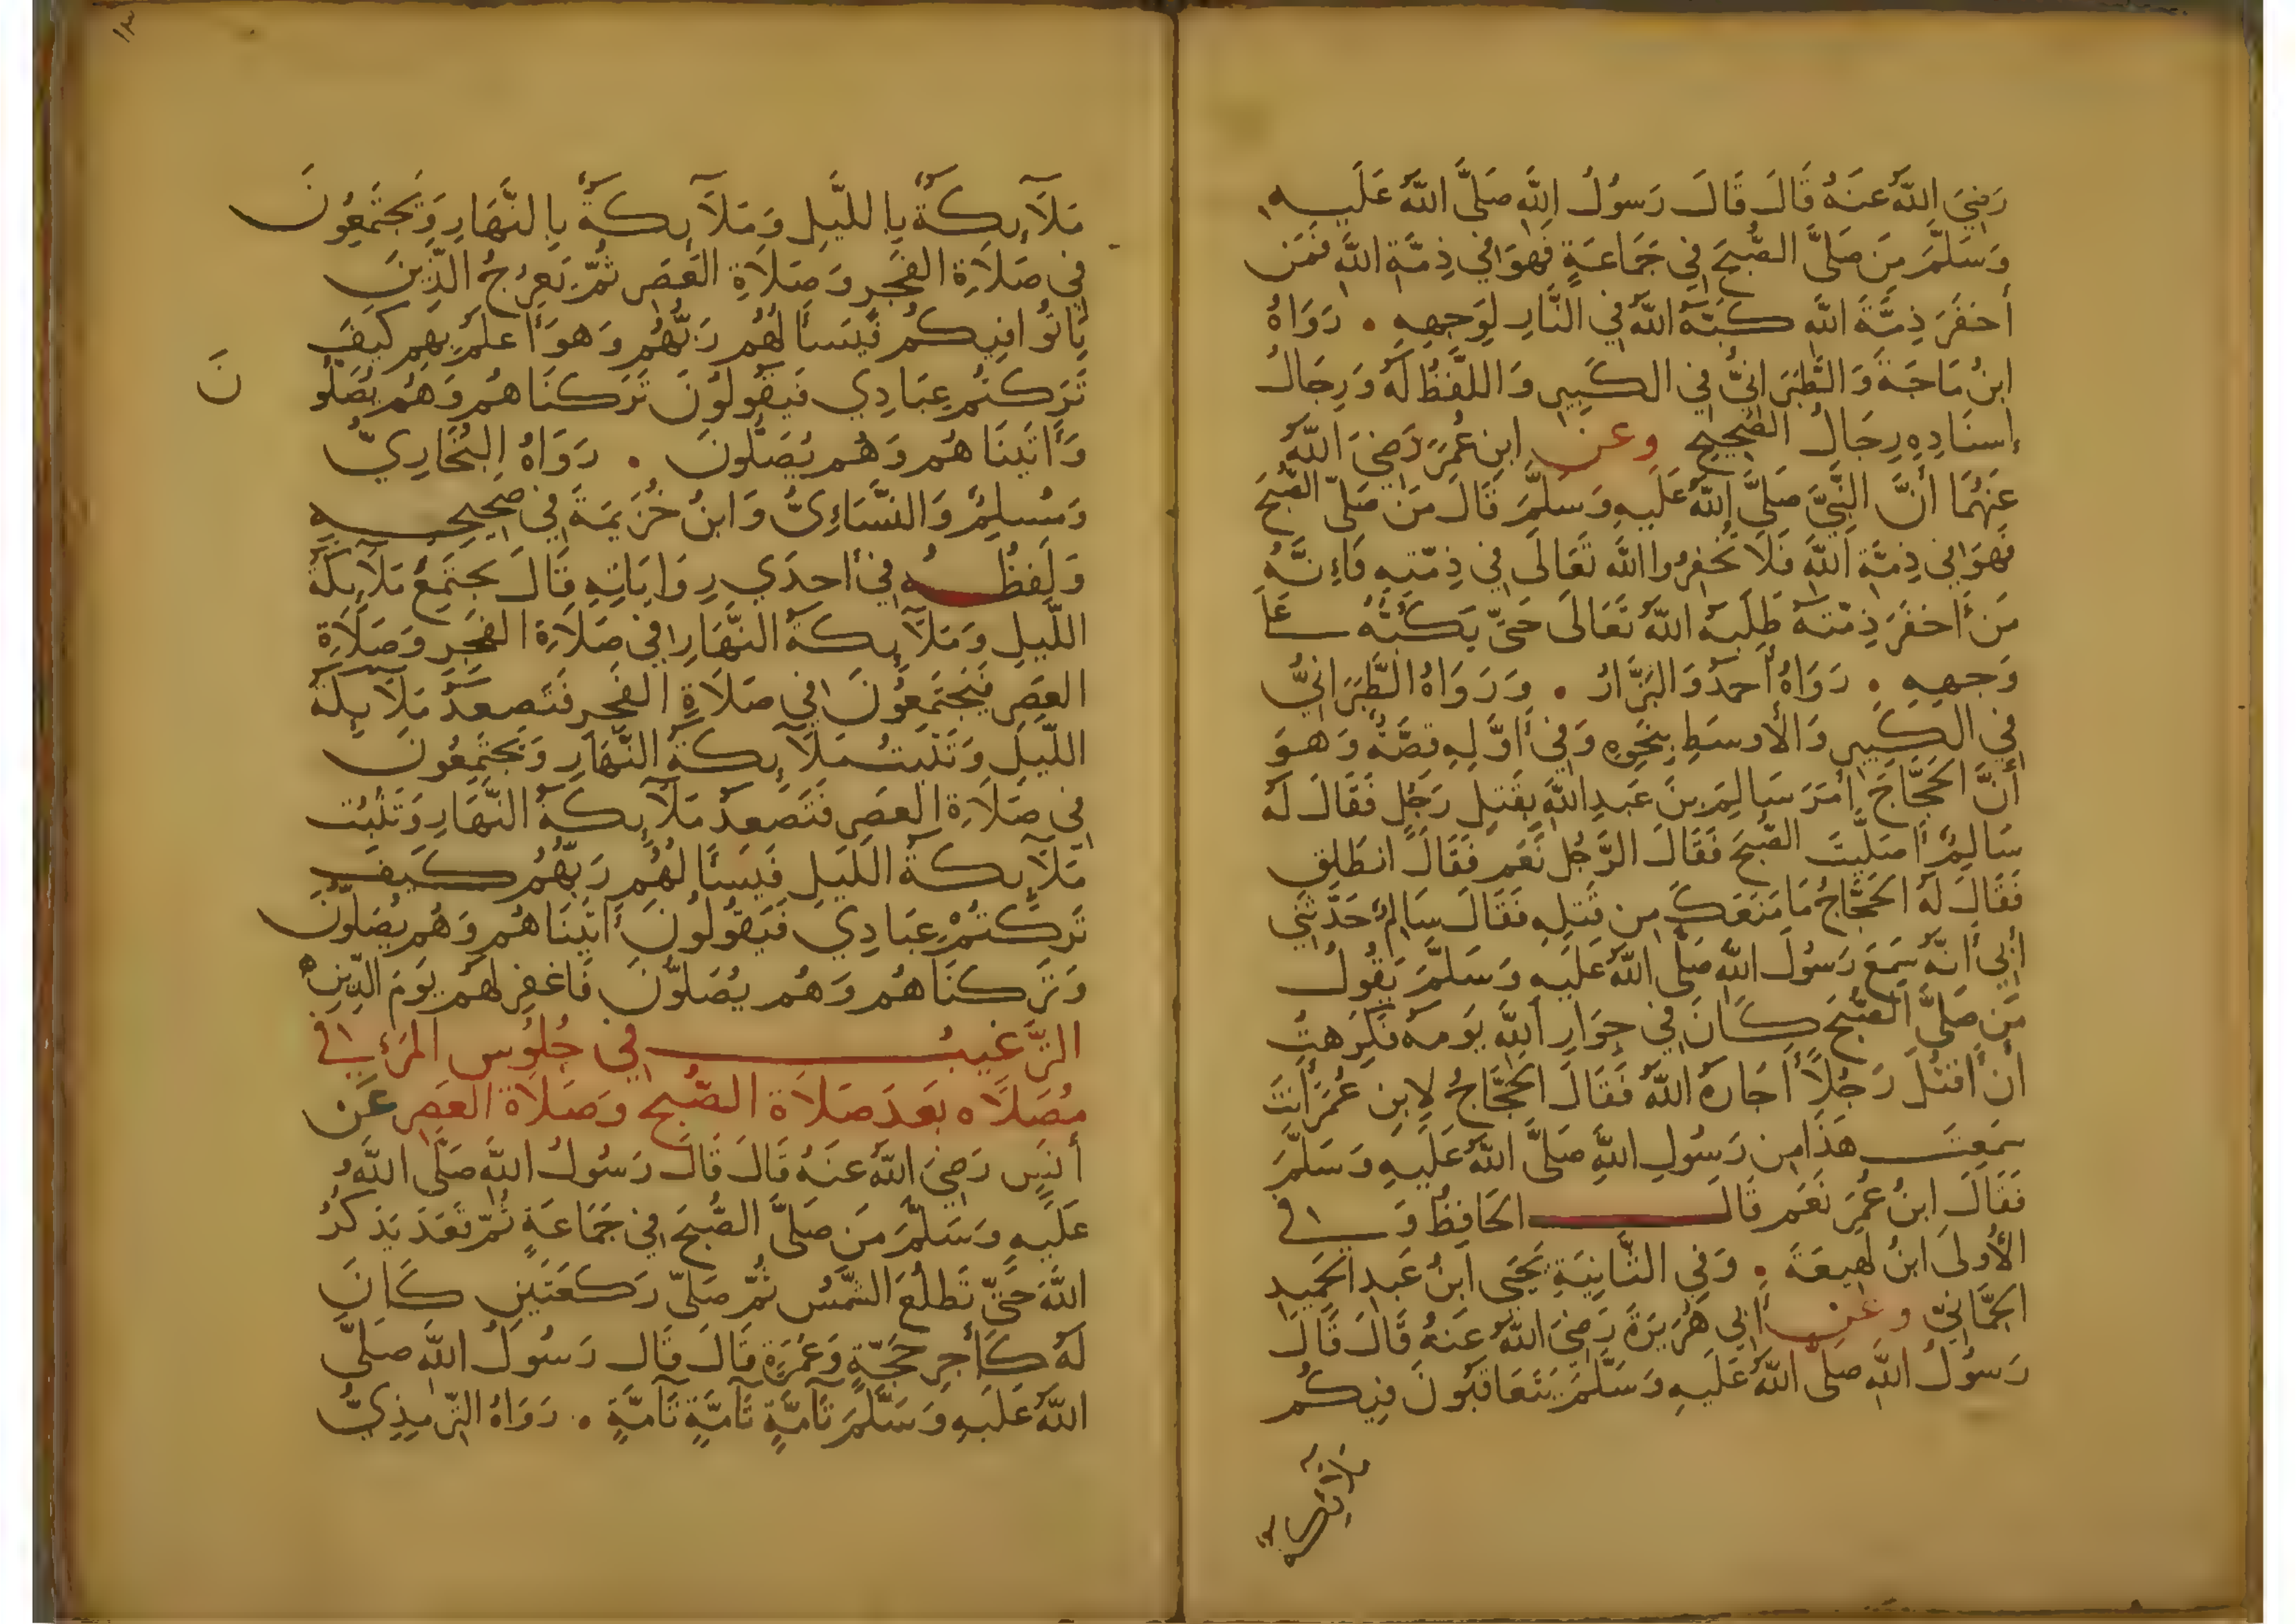 رَضِيَ اللَّهُ عَنهُ قَالَ قَالَ رَسُولُ اللَّهِ صَلَّى اللَّهُ عَلَيهِ
وَسَلَّمَ مَن صَلَّى الصُّبحَ فِي جَمَاعَةٍ فَهُوَ فِي ذِمَّةِ اللَّهِ فَمَن
أَخفَرَ ذِمَّةَ اللَّهِ كَبَّهُ اللَّهُ فِي النَّارِ لِوَجهِهِ . رَوَاهُ
ابنُ مَاجَه وَالطَّبَرَانِيُّ فِي الكَبِيرِ وَاللَّفظُ لَهُ وَرِجَالُ
إِسنَادِهِ رِجَالُ الصَّحِيحِ وعن ابنِ عُمَرَ رَضِيَ اللَّهُ
عَنهُمَا أَنَّ النَّبِيَّ صَلَّى اللَّهُ عَلَيهِ وَسَلَّمَ قَالَ مَن صَلَّى الصُّبحَ
فَهُوَ فِي ذِمَّةِ اللَّهِ فَلَا تُخفِرُوا اللَّهَ تَعَالَى فِي ذِمَّتِهِ فَإِنَّهُ
مَن أَخفَرَ ذِمَّتَهُ طَلَبَهُ اللَّهُ تَعَالَى حَتَّى يَكُبَّهُ عَلَى
وَجهِهِ . رَوَاهُ أَحمَدُ وَالبَزَّارُ . وَرَوَاهُ الطَّبَرَانِيُّ
فِي الكَبِيرِ وَالأَوسَطِ بِنَحوِهِ وَفِي أَوَّلِهِ قِصَّةٌ وَهوَ
أَنَّ الحَجَّاجَ أَمَرَ سَالِمَ بنَ عَبدِ اللَّهِ بِقَتلِ رَجُلٍ فَقَالَ لَهُ
سَالِمٌ أَصَلَّيتَ الصُّبحَ فَقَالَ الرَّجُلُ نَعَم فَقَالَ انطَلِق
فَقَالَ لَهُ الحَجَّاجُ مَا مَنَعَكَ مِن قَتلِهِ فَقَالَ سَالِمٌ حَدَّثَنِي
أَبِي أَنَّهُ سَمِعَ رَسُولَ اللَّهِ صَلَّى اللَّهُ عَلَيهِ وَسَلَّمَ يَقُولُ
مَن صَلَّى الصُّبحَ كَانَ فِي جِوَارِ اللَّهِ يَومَهُ فَكَرِهتُ
أَن أَقتُلَ رَجُلًا أَجَارَهُ اللَّهُ فَقَالَ الحَجَّاجُ لِابنِ عُمَرَ أَنتَ
سَمِعتَ هَذَا مِن رَسُولِ اللَّهِ صَلَّى اللَّهُ عَلَيهِ وَسَلَّمَ
فَقَالَ ابنُ عُمَرَ نَعَم قَالَ الحَافِظُ وَفِي
الأُولَى ابنُ لَهِيعَةَ . وَفِي الثَّانِيَةِ يَحيَى ابنُ عَبدِ الحَمِيدِ
الحِمَّانِيّ وعن أَبِي هُرَيرَةَ رَضِيَ اللَّهُ عَنهُ قَالَ قَالَ
رَسُولُ اللَّهِ صَلَّى اللَّهُ عَلَيهِ وَسَلَّمَ يَتَعَاقَبُونَ فِيكُم
ملائكة
١٣
مَلَآئِكَةٌ بِاللَّيلِ وَمَلَآئِكَةٌ بِالنَّهَارِ وَيَجتَمِعُونَ
فِي صَلَاةِ الفَجرِ وَصَلَاةِ العَصرِ ثُمَّ يَعرُجُ الَّذِينَ
بَاتُوا فِيكُم فَيَسأَلُهُم رَبُّهُم وَهوَ أَعلَمُ بِهِم كَيفَ
تَرَكتُم عِبَادِي فَيَقُولُونَ تَرَكنَاهُم وَهُم يُصَلُّو
نَ
وَأَتَينَاهُم وَهُم يُصَلُّونَ . رَوَاهُ البُخَارِيُّ
وَمُسلِمٌ وَالنَّسَائِيُّ وَابنُ خُزَيمَةَ فِي صَحِيحِهِ
وَلَفظُهُ فِي أَحدَي رِوَايَاتِهِ قَالَ يَجتَمِعُ مَلَآئِكَةُ
اللَّيلِ وَمَلَآئِكَةُ النَّهَارِ فِي صَلَاةِ الفَجرِ وَصَلَاةِ
العَصرِ فَيَجتَمِعُونَ فِي صَلَاةِ الفَجرِ فَتَصعَدُ مَلَآئِكَةُ
اللَّيلِ وَتَثبُتُ مَلَآئِكَةُ النَّهَارِ وَيَجتَمِعُونَ
فِي صَلَاةِ العَصرِ فَتَصعَدُ مَلَآئِكَةُ النَّهَارِ وَتَثبُتُ
مَلَآئِكَةُ اللَّيلِ فَيَسأَلُهُم رَبُّهُم كَيفَ
تَرَكتُمْ عِبَادِي فَيَقُولُونَ أَتَينَاهُم وَهُم يُصَلُّونَ
وَتَرَكنَاهُم وَهُم يُصَلُّونَ فَاغفِر لَهُم يَومَ الدِّينِ
التَّرغِيبُ فِي جُلُوسِ المَرءِ فِي
مُصَلَّاه بَعدَ صَلَاة الصُّبحِ وَصَلَاة العَصرِ عَن
أَنَسٍ رَضِيَ اللَّهُ عَنهُ قَالَ قَالَ رَسُولُ اللَّهِ صَلَّى اللَّهُ
عَلَيهِ وَسَلَّمَ مَن صَلَّى الصُّبحَ فِي جَمَاعَةٍ ثُمَّ قَعَدَ يَذكُرُ
اللَّهَ حَتَّى تَطلُعَ الشَّمسُ ثُمَّ صَلَّى رَكعَتَينِ كَانَ
لَهُ كَأَجرِ حَجَّةٍ وَعُمرَةٍ قَالَ قَالَ رَسُولُ اللَّهِ صَلَّى
اللَّهُ عَلَيهِ وَسَلَّمَ تَآمَّةٍ تَآمَّةٍ تَآمَّةٍ . رَوَاهُ التِّرمِذِيُّ